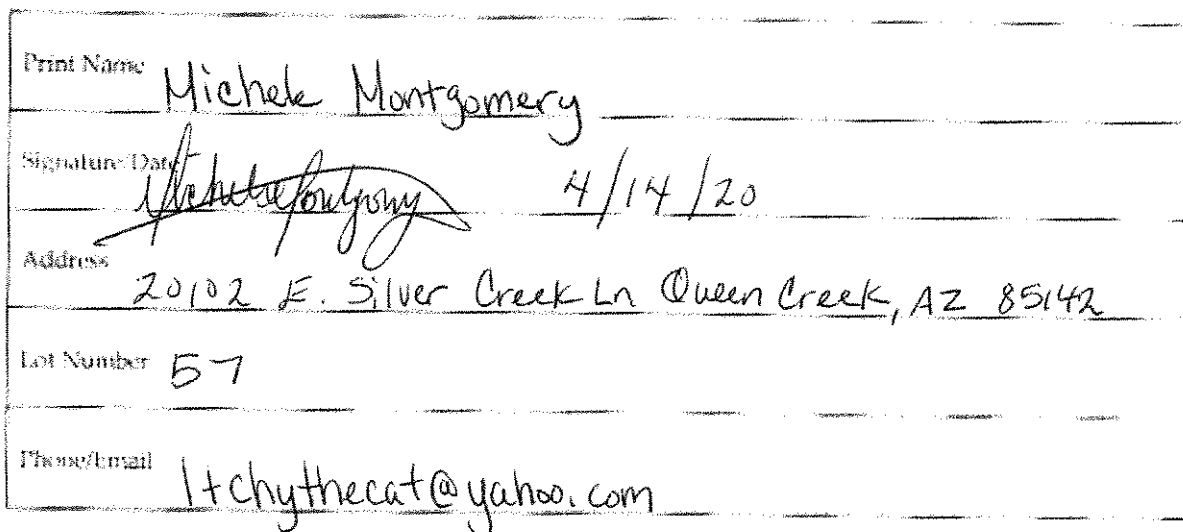 Print Name Michele Montgomery
Signature/Date Michele Montgomery 4/14/20
Address
20102 E. Silver Creek Ln Queen Creek, AZ 85142
Lot Number 57
Phone/Email Itchythecat@yahoo.com